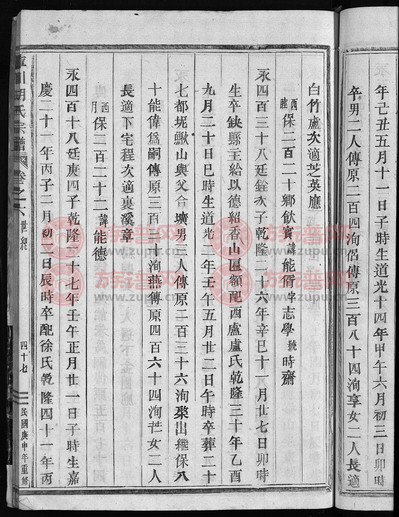 年己丑五月十一日子時生道光十四年甲午六月初三日卯時
卒男二人傳原二百四洵侶傳原三百八十四洵享女二人長適
白竹盧次適芝英應
保二百二十鄉飲賓諱能衡字志學號時齋
永四百三十八廷銓次子乾隆二十六年辛巳十一月廿七日卯時
生卒缺縣主給以德紹香山匾額配西盧盧氏乾隆三十年乙酉
九月二十日巳時生道光二年壬午五月廿二日午時卒葬二十
七都坭鰍山與父合壙男三人傳原二百三十六洵棸出繼保八
十能偉為嗣傳原三百二十洵燕傳原四百六十四洵芒女二人
長適下宅程次適裏溪章
保二百二十二諱能德
永四百十八廷庚四子乾隆三十七年壬午正月廿一日子時生嘉
慶二十一年丙子二月初二日辰時卒配徐氏乾隆四十一年丙
川胡氏宗譜
卷之八
四十七
民國庚申年重修
族譜网
www.zupu.cn